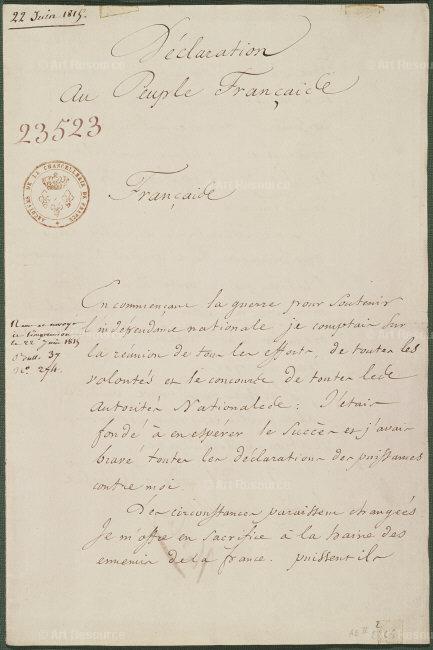 22 Juin 1815.
Déclaration
Au Peuple Françaide
23523
ARCHIVES DE LA CHANCELLERIE DE FRANCE
Françaide
En commençant la guerre pour Soutenir
l'indépendance nationale je comptais Sur
la réunion de tous les efforts, de toutes les
volontés et le concours de toutes lede
Autorités Nationalede; J'étais
fondé à en espérer le Succès et j'avais
bravé toutes les déclarations des puissances
contre moi
le 22 Juin 1815
37
No. 274.
Des circonstances paraissent changées
Je m'offre en Sacrifice à la haine des
ennemis de la france. puissent ils
Art Resource